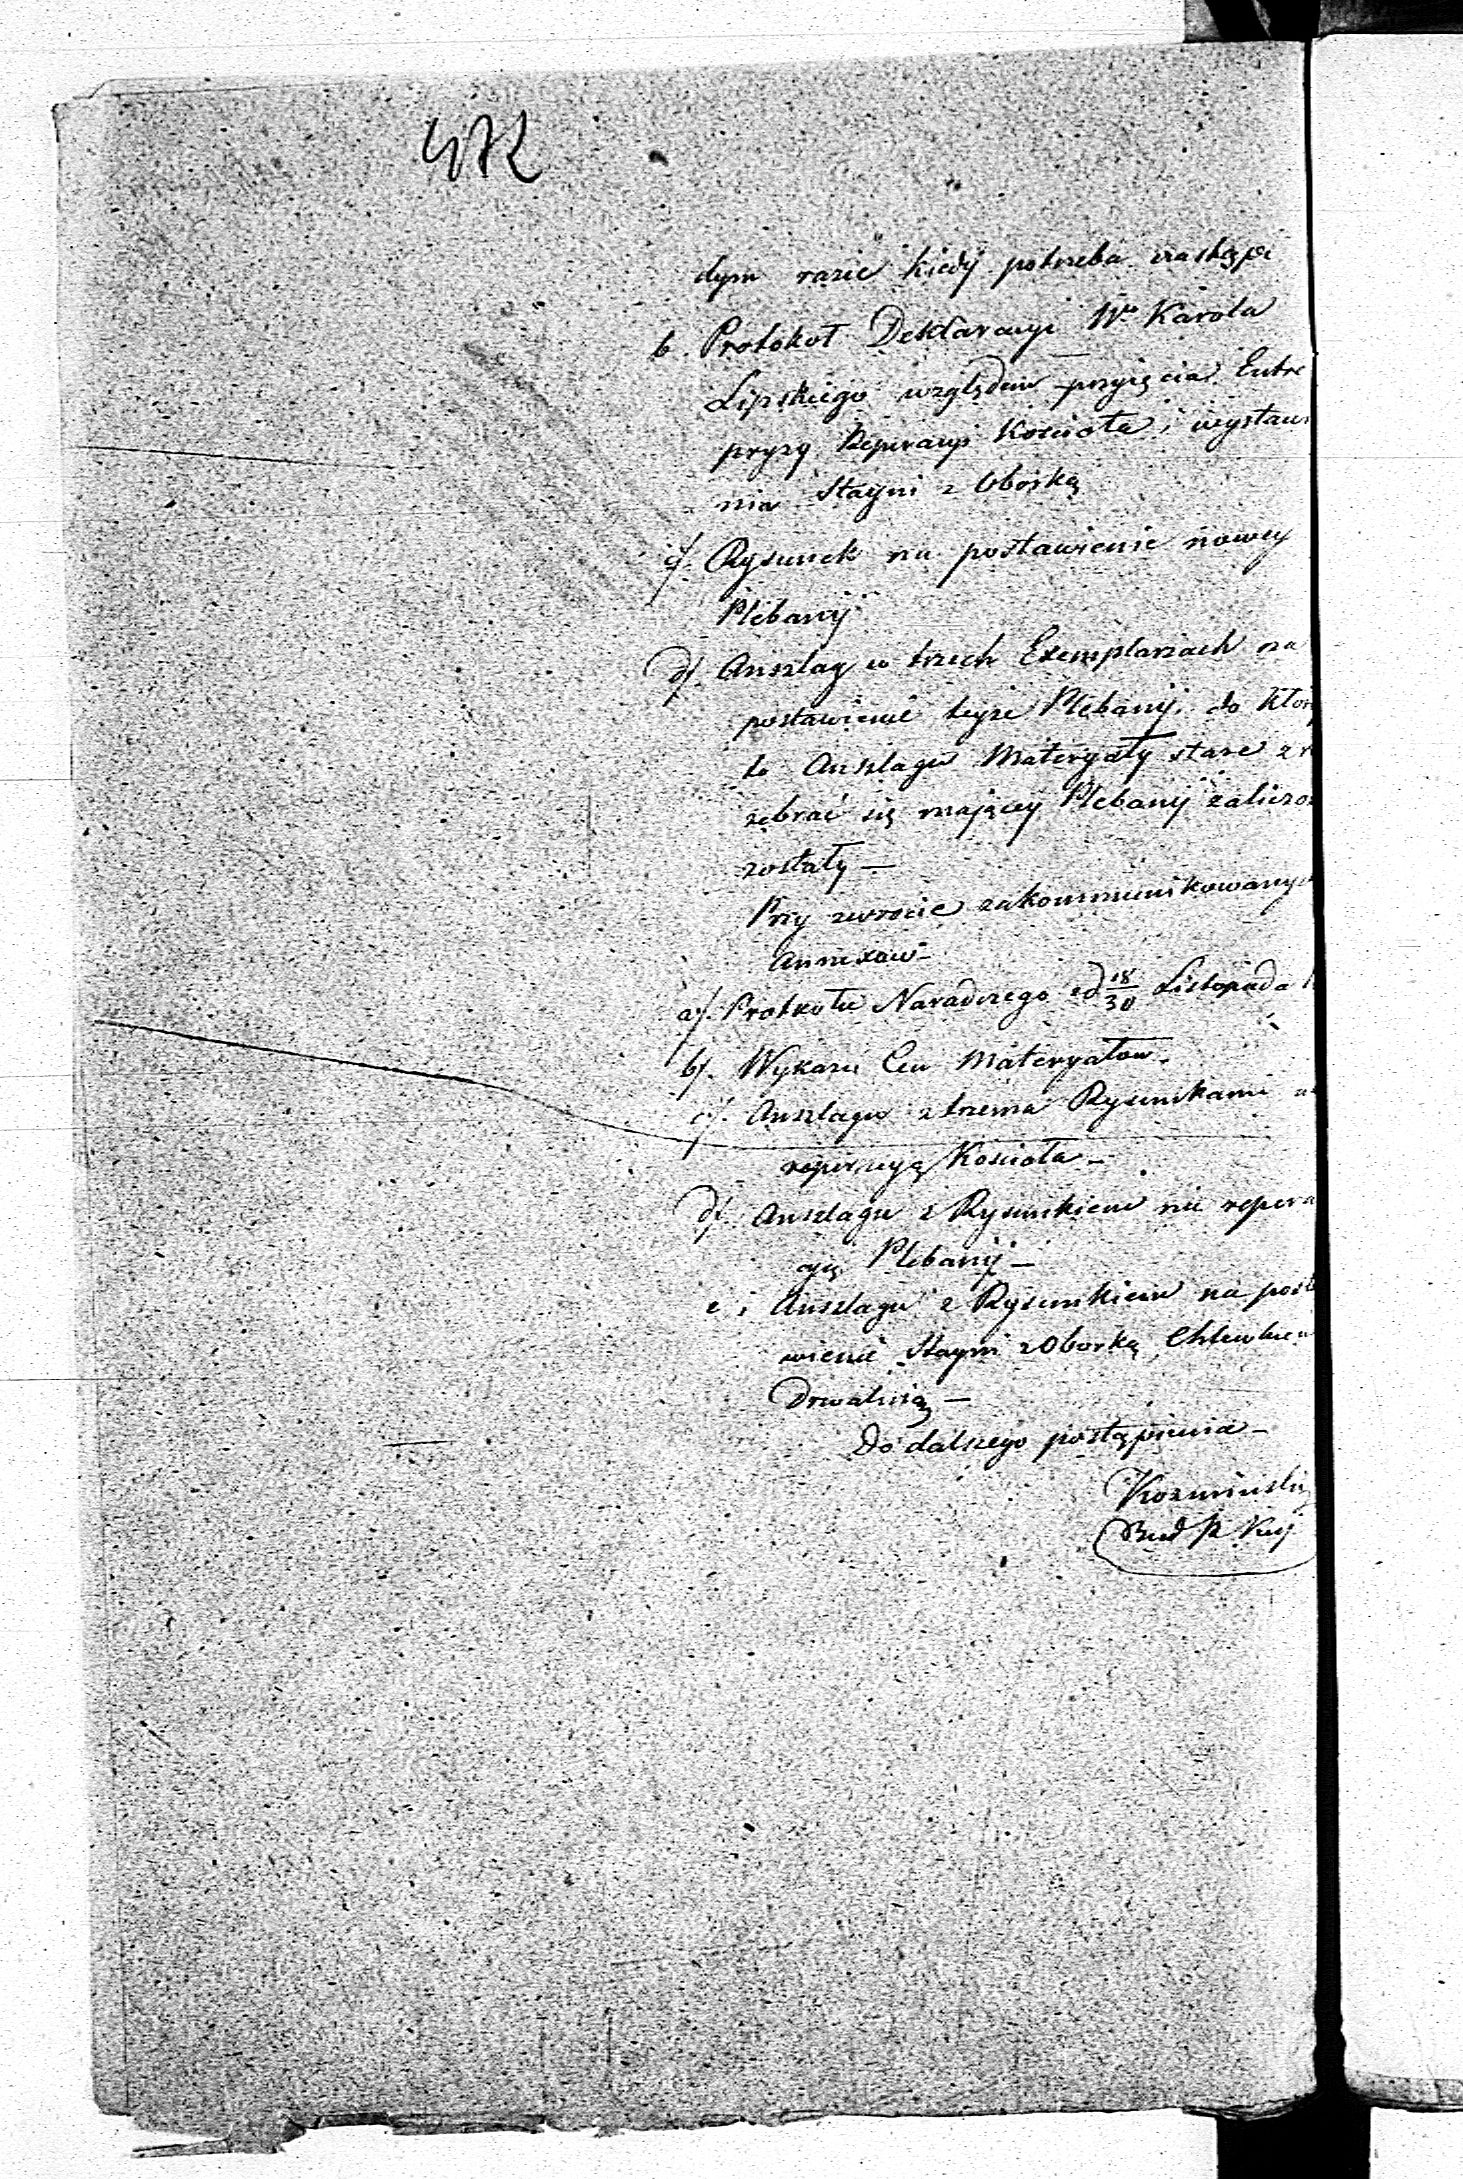 472
dym razie kiedy potrzeba nastąpi
b. Protokół Deklaracyi Wo Karola
Lipskiego względem przyięcia Entre
pryzy Reperacyi Kościoła i wystaw
nia Stayni z Oborką
c/. Rysunek na postawienie nowey
Plebanij
d/. Anszlag w trzech Exemplarzach na
postawienie teyże Plebanij, do któr
to Anszlagu Materyały stare z r
zebrać się maiącey Plebanij zaliczo
zostały —
Przy zwrocie zakommunikowanyc
Annexow —
a/. Protkołu Naradczego od 18/30 Listopada
b/. Wykazu Cen Materyałow.
c/. Anszlagu z trzema Rysunkami
reperacyą Kościoła —
d/. Anszlagu z Rysunkiem na repera
cyią Plebanij —
e, Anszlagu z Rysunkiem na posta
wienie Stayni z Oborką Chlewkiem
Drwalnią —
Do dalszego postąpienia —
Kozmiński
Bud P. Kuj